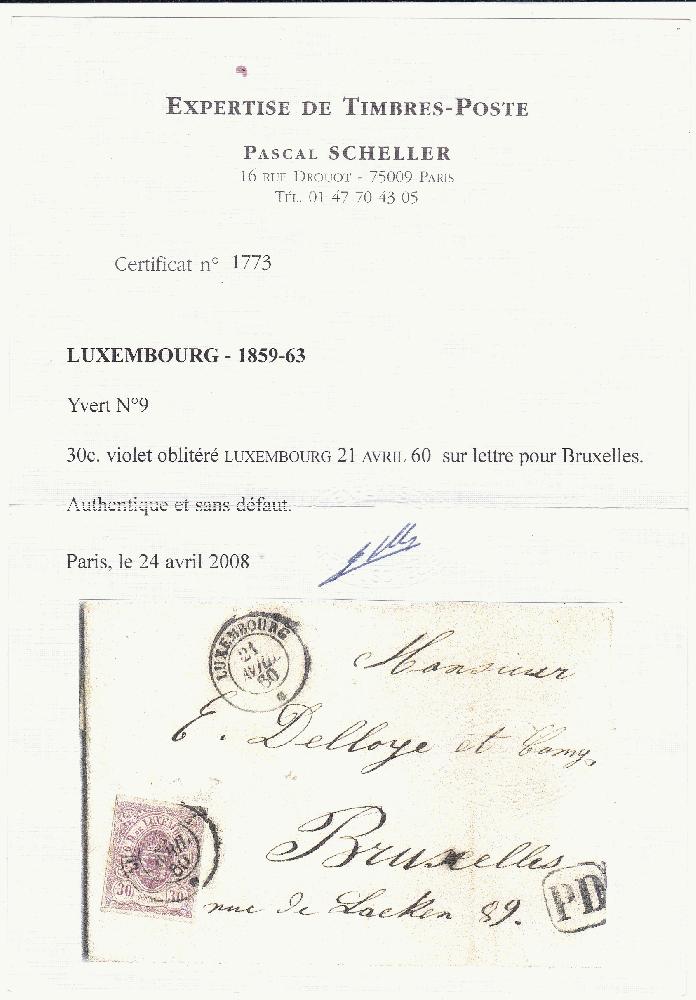 EXPERTISE DE TIMBRES-POSTE
PASCAL SCHELLER
16 RUE DROUOT - 75009 PARIS
TÉL. 01 47 70 43 05
Certificat n° 1773
LUXEMBOURG - 1859-63
Yvert N°9
30c. violet oblitéré LUXEMBOURG 21 AVRIL 60 sur lettre pour Bruxelles.
Authentique et sans défaut.
Paris, le 24 avril 2008
LUXEMBOURG
21
AVRIL
60
Monsieur
E. Delloye et Comp.
Bruxelles
rue de Laeken 89.
PD
30
30